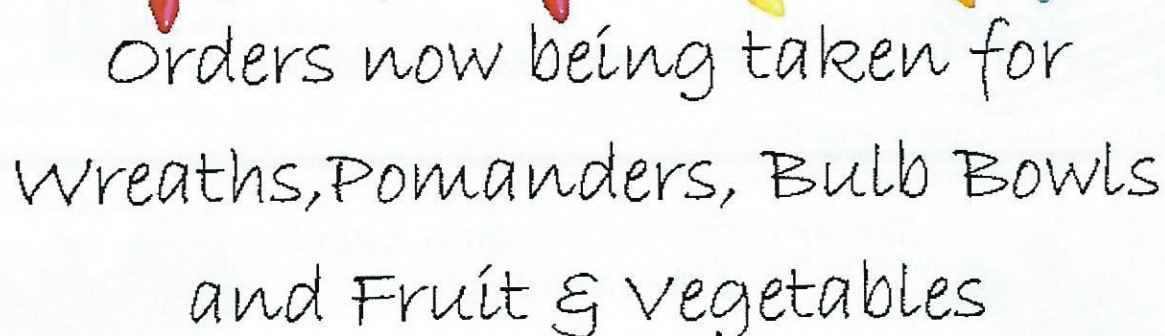 Orders now being taken for
Wreaths,Pomanders, Bulb Bowls
and Fruit & Vegetables